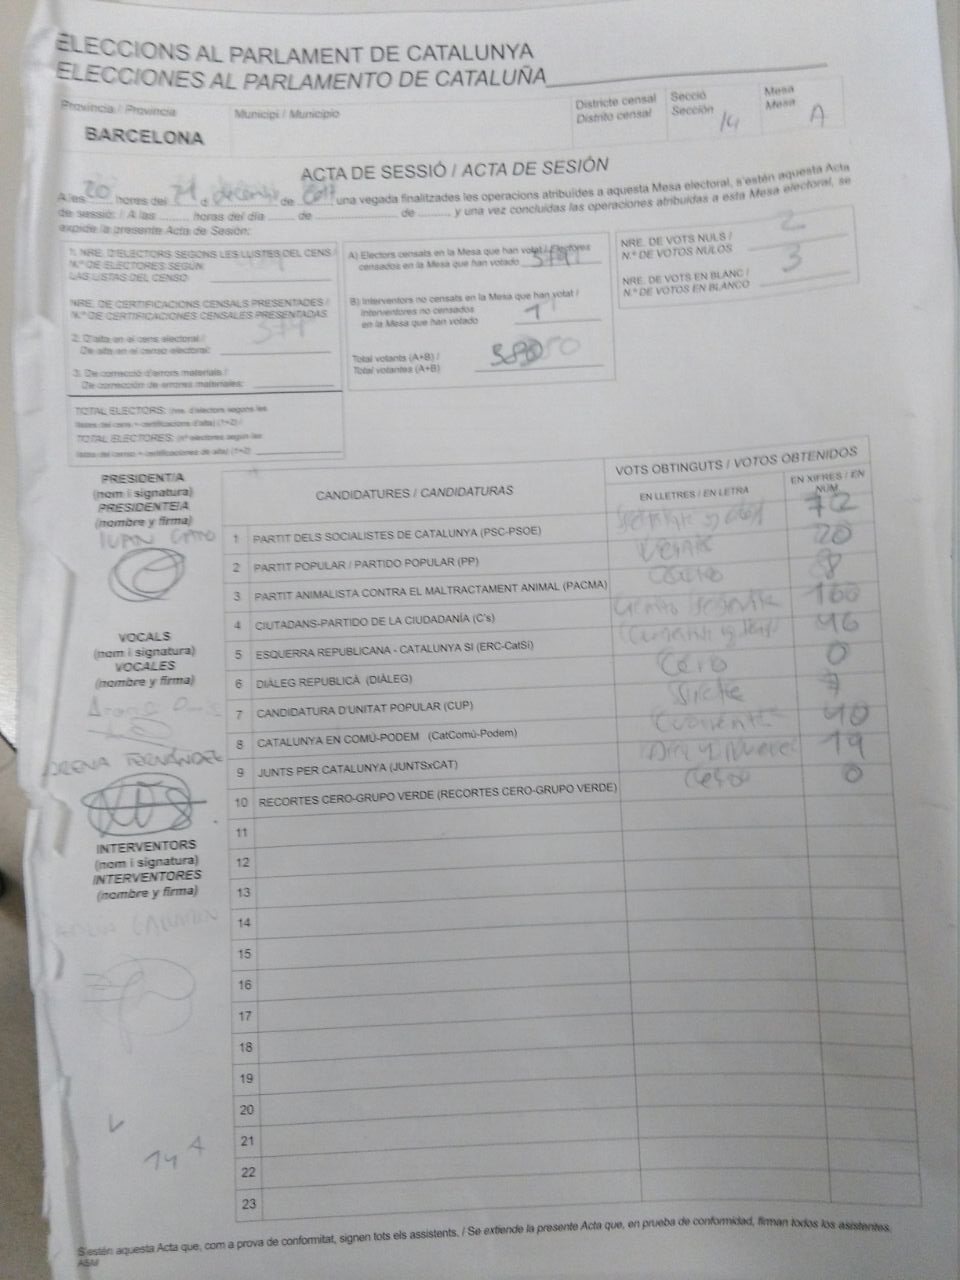 ELECCIONS AL PARLAMENT DE CATALUNYA
ELECCIONES AL PARLAMENTO DE CATALUÑA
Provincia / Provincia
BARCELONA
Municipi / Municipio
Districte censal
Distrito censal
Secció
Sección
14
Mesa
Mesa
A
ACTA DE SESSIÓ / ACTA DE SESIÓN
A les 20 hores del 21 d de 2017 una vegada finalitzades les operacions atribuïdes a aquesta Mesa electoral, s'estén aquesta Acta
de sessió: / A las ........ horas del día ...... de .................... de ........ y una vez concluidas las operaciones atribuidas a esta Mesa electoral, se
expide la presente Acta de Sesión:
1. NRE. D'ELECTORS SEGONS LES LLISTES DEL CENS /
N.º DE ELECTORES SEGÚN
LAS LISTAS DEL CENSO
NRE. DE CERTIFICACIONS CENSALS PRESENTADES /
N.º DE CERTIFICACIONES CENSALES PRESENTADAS
2. D'alta en el cens electoral /
De alta en el censo electoral:
3. De correcció d'errors materials /
De corrección de errores materiales:
TOTAL ELECTORS: (nre. d'electors segons les
llistes del cens + certificacions d'alta) (1+2) /
TOTAL ELECTORES: (nº electores según las
listas del censo + certificaciones de alta) (1+2)
A) Electors censats en la Mesa que han votat / Electores
censados en la Mesa que han votado 379
B) Interventors no censats en la Mesa que han votat /
Interventores no censados
en la Mesa que han votado 1
Total votants (A+B) /
Total votantes (A+B) 380
NRE. DE VOTS NULS /
N.º DE VOTOS NULOS 2
NRE. DE VOTS EN BLANC /
N.º DE VOTOS EN BLANCO 3
PRESIDENT/A
(nom i signatura)
PRESIDENTE/A
(nombre y firma)
IVAN
VOCALS
(nom i signatura)
VOCALES
(nombre y firma)
FERNÁNDEZ
INTERVENTORS
(nom i signatura)
INTERVENTORES
(nombre y firma)
14 A
CANDIDATURES / CANDIDATURAS
VOTS OBTINGUTS / VOTOS OBTENIDOS
EN LLETRES / EN LETRA
EN XIFRES / EN
NÚM.
1 PARTIT DELS SOCIALISTES DE CATALUNYA (PSC-PSOE) 72
2 PARTIT POPULAR / PARTIDO POPULAR (PP) veinte 20
3 PARTIT ANIMALISTA CONTRA EL MALTRACTAMENT ANIMAL (PACMA) 8
4 CIUTADANS-PARTIDO DE LA CIUDADANÍA (C's) 160
5 ESQUERRA REPUBLICANA - CATALUNYA SÍ (ERC-CatSí) 46
6 DIÀLEG REPUBLICÀ (DIÀLEG) Cero 0
7 CANDIDATURA D'UNITAT POPULAR (CUP) Siete 7
8 CATALUNYA EN COMÚ-PODEM (CatComú-Podem) 40
9 JUNTS PER CATALUNYA (JUNTSxCAT) 19
10 RECORTES CERO-GRUPO VERDE (RECORTES CERO-GRUPO VERDE) Cero 0
11
12
13
14
15
16
17
18
19
20
21
22
23
S'estén aquesta Acta que, com a prova de conformitat, signen tots els assistents. / Se extiende la presente Acta que, en prueba de conformidad, firman todos los asistentes.